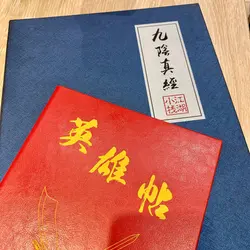 九陰真經
江湖
小棧
英雄帖